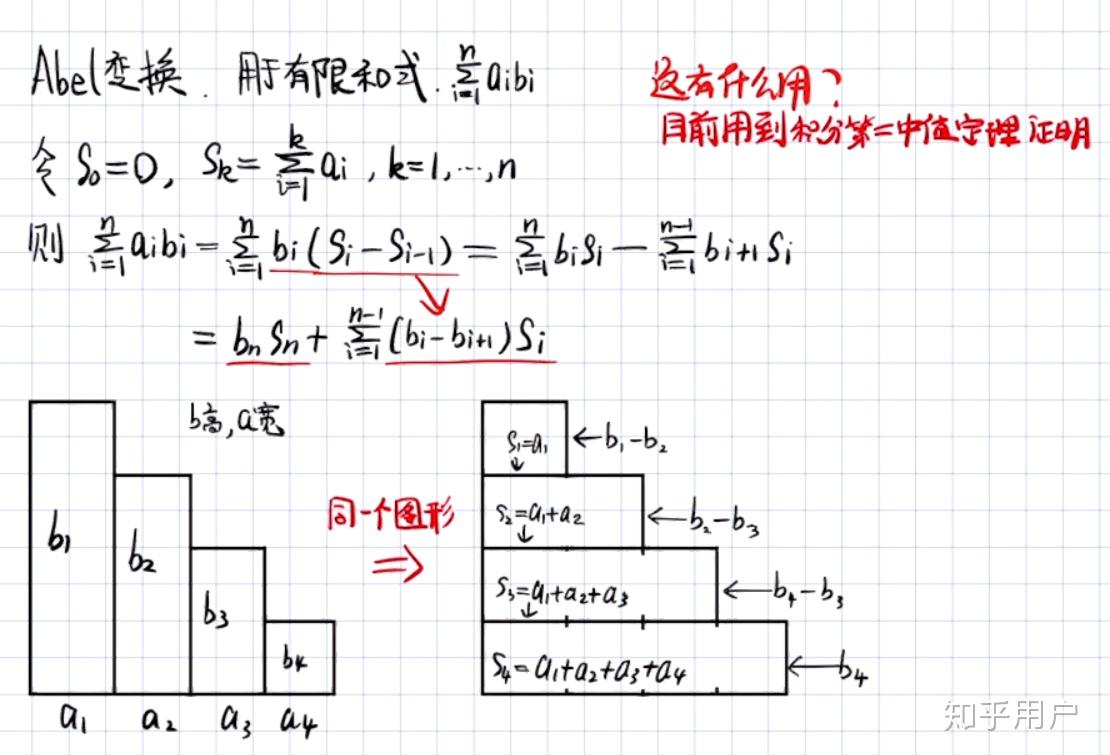 Abel变换. 用于有限和式. \sum_{i=1}^{n} a_i b_i
这有什么用?
目前用到积分第二中值定理证明
令 S_0=0, S_k=\sum_{i=1}^{k} a_i, k=1,…,n
则 \sum_{i=1}^{n} a_i b_i = \sum_{i=1}^{n} b_i(S_i-S_{i-1}) = \sum_{i=1}^{n} b_i S_i - \sum_{i=1}^{n-1} b_{i+1} S_i
= b_n S_n + \sum_{i=1}^{n-1} (b_i-b_{i+1}) S_i
b高,a宽
b_1
b_2
b_3
b_4
a_1 a_2 a_3 a_4
同一个图形
⇒
S_1=a_1 ← b_1-b_2
S_2=a_1+a_2 ← b_2-b_3
S_3=a_1+a_2+a_3 ← b_4-b_3
S_4=a_1+a_2+a_3+a_4 ← b_4
知乎用户